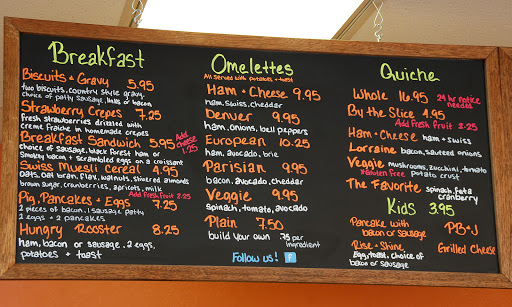 Breakfast
Biscuits + Gravy 5.95
two biscuits, country style gravy,
choice of patty sausage, links or bacon
Strawberry Crepes 7.25
Fresh strawberries drizzled with
creme fraiche in homemade crepes
Breakfast Sandwich 5.95
Add cheese 1.25
choice of sausage, black forest ham or
smokey bacon + scrambled eggs on a croissant
Swiss Muesli Cereal 4.95
oats, oat bran, flax, walnuts, slivered almonds
brown sugar, cranberries, apricots, milk
Add Fresh Fruit 2.25
Pig, Pancakes + Eggs 7.25
2 pieces of bacon, 1 sausage patty
2 eggs + 2 pancakes
Hungry Rooster 8.25
Ham, bacon or sausage, 2 eggs,
potatoes + toast
Omelettes
All served with potatoes + toast
Ham + Cheese 9.95
ham, swiss, cheddar
Denver 9.95
ham, onions, bell peppers
European 10.25
ham, avocado, brie
Parisian 9.95
bacon, avocado, cheddar
Veggie 9.95
spinach, tomato, avocado
Plain 7.50
build your own .75 per
ingredient
Follow us! f
Quiche
Whole 16.95
24 hr notice
needed
By the Slice 4.95
Add Fresh Fruit 2.25
Ham + Cheese ham + swiss
Lorraine bacon, sauteed onions
Veggie mushrooms, zucchini, tomato
*Gluten Free potato crust
The Favorite spinach, feta
cranberry
Kids 3.95
Pancake with
bacon or sausage
PB+J
Rise + Shine
Egg, toast, choice of
bacon or sausage
Grilled Cheese